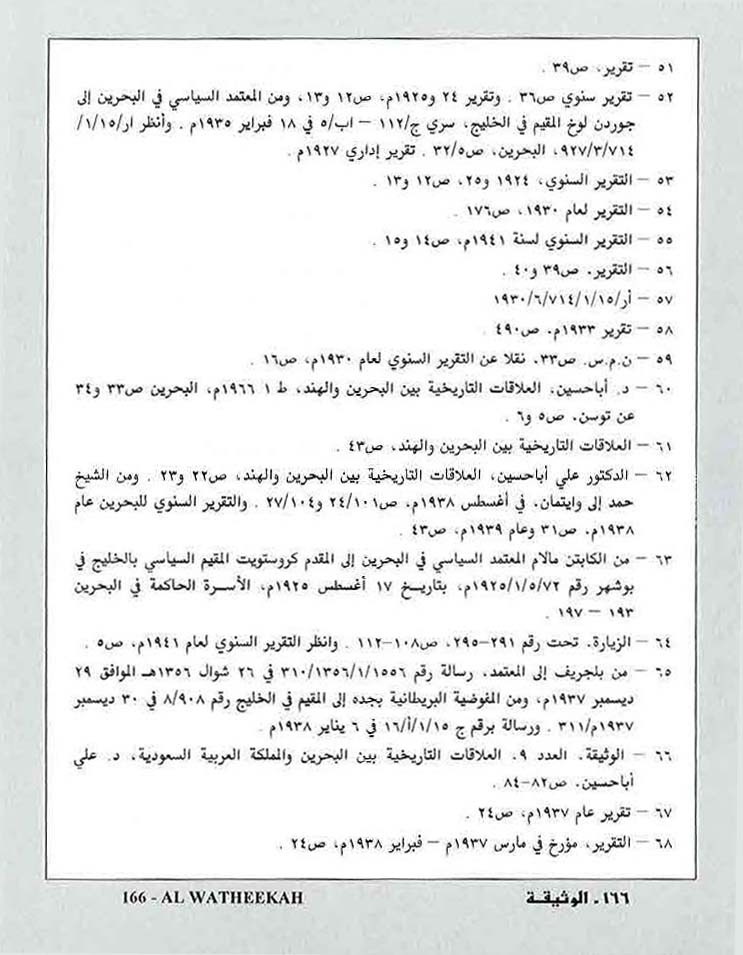 ٥١ – تقرير، ص٣٩ .
٥٢ – تقرير سنوي ص٣٦ . وتقرير ٢٤ و١٩٢٥م، ص١٢ و١٣، ومن المعتمد السياسي في البحرين إلى
جوردن لوخ المقيم في الخليج، سري ج/١١٢ – اب/٥ في ١٨ فبراير ١٩٣٥م . وأنظر ار/١/١٥/
٩٢٧/٣/٧١٤، البحرين، ص٣٢/٥ . تقرير إداري ١٩٢٧م .
٥٣ – التقرير السنوي، ١٩٢٤ و٢٥، ص١٢ و١٣ .
٥٤ – التقرير لعام ١٩٣٠، ص١٧٦ .
٥٥ – التقرير السنوي لسنة ١٩٤١م، ص١٤ و١٥ .
٥٦ – التقرير. ص٣٩ و٤٠ .
٥٧ – أر/١٩٣٠/٦/٧١٤/١/١٥
٥٨ – تقرير ١٩٣٣م. ص٤٩٠ .
٥٩ – ن.م.س. ص٣٣. نقلا عن التقرير السنوي لعام ١٩٣٠م، ص١٦ .
٦٠ – د. أباحسين، العلاقات التاريخية بين البحرين والهند، ط ١ ١٩٦٦م، البحرين ص٣٣ و٣٤
عن توسن. ص٥ و٦ .
٦١ – العلاقات التاريخية بين البحرين والهند، ص٤٣ .
٦٢ – الدكتور علي أباحسين، العلاقات التاريخية بين البحرين والهند، ص٢٢ و٢٣ . ومن الشيخ
حمد إلى وايتمان، في أغسطس ١٩٣٨م، ص٢٤/١٠١ و٢٧/١٠٤ . والتقرير السنوي للبحرين عام
١٩٣٨م. ص٣١ وعام ١٩٣٩م، ص٤٣ .
٦٣ – من الكابتن مالام المعتمد السياسي في البحرين إلى المقدم كروستويت المقيم السياسي بالخليج في
بوشهر رقم ١٩٢٥/١/٥/٧٢م، بتاريخ ١٧ أغسطس ١٩٢٥م، الأسرة الحاكمة في البحرين
١٩٣ – ١٩٧ .
٦٤ – الزيارة. تحت رقم ٢٩١-٢٩٥، ص١٠٨-١١٢ . وانظر التقرير السنوي لعام ١٩٤١م، ص٥ .
٦٥ – من بلجريف إلى المعتمد، رسالة رقم ٣١٠/١٣٥٦/١/١٥٥٦ في ٢٦ شوال ١٣٥٦هـ الموافق ٢٩
ديسمبر ١٩٣٧م، ومن المفوضية البريطانية بجده إلى المقيم في الخليج رقم ٨/٩٠٨ في ٣٠ ديسمبر
١٩٣٧م/٣١١ . ورسالة برقم ج ١/١٥/أ/١٦ في ٦ يناير ١٩٣٨م .
٦٦ – الوثيقة. العدد ٩. العلاقات التاريخية بين البحرين والمملكة العربية السعودية، د. علي
أباحسين. ص٨٢-٨٤ .
٦٧ – تقرير عام ١٩٣٧م، ص٢٤ .
٦٨ – التقرير، مؤرخ في مارس ١٩٣٧م – فبراير ١٩٣٨م، ص٢٤ .
١٦٦ - الوثيقة
166 - AL WATHEEKAH